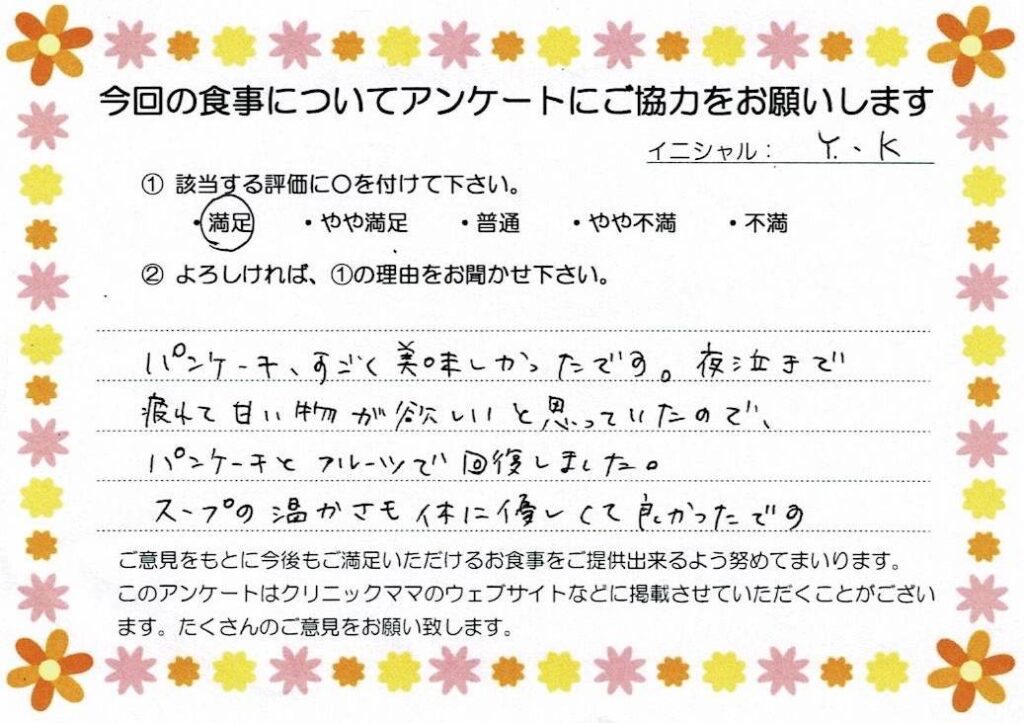 今回の食事についてアンケートにご協力をお願いします
イニシャル： Y.・K
① 該当する評価に○を付けて下さい。
・満足 ・やや満足 ・普通 ・やや不満 ・不満
② よろしければ、①の理由をお聞かせ下さい。
パンケーキ、すごく美味しかったです。夜泣きで
疲れて甘い物が欲しいと思っていたので、
パンケーキとフルーツで回復しました。
スープの温かさも体に優しくて良かったです
ご意見をもとに今後もご満足いただけるお食事をご提供出来るよう努めてまいります。
このアンケートはクリニックママのウェブサイトなどに掲載させていただくことがござい
ます。たくさんのご意見をお願い致します。